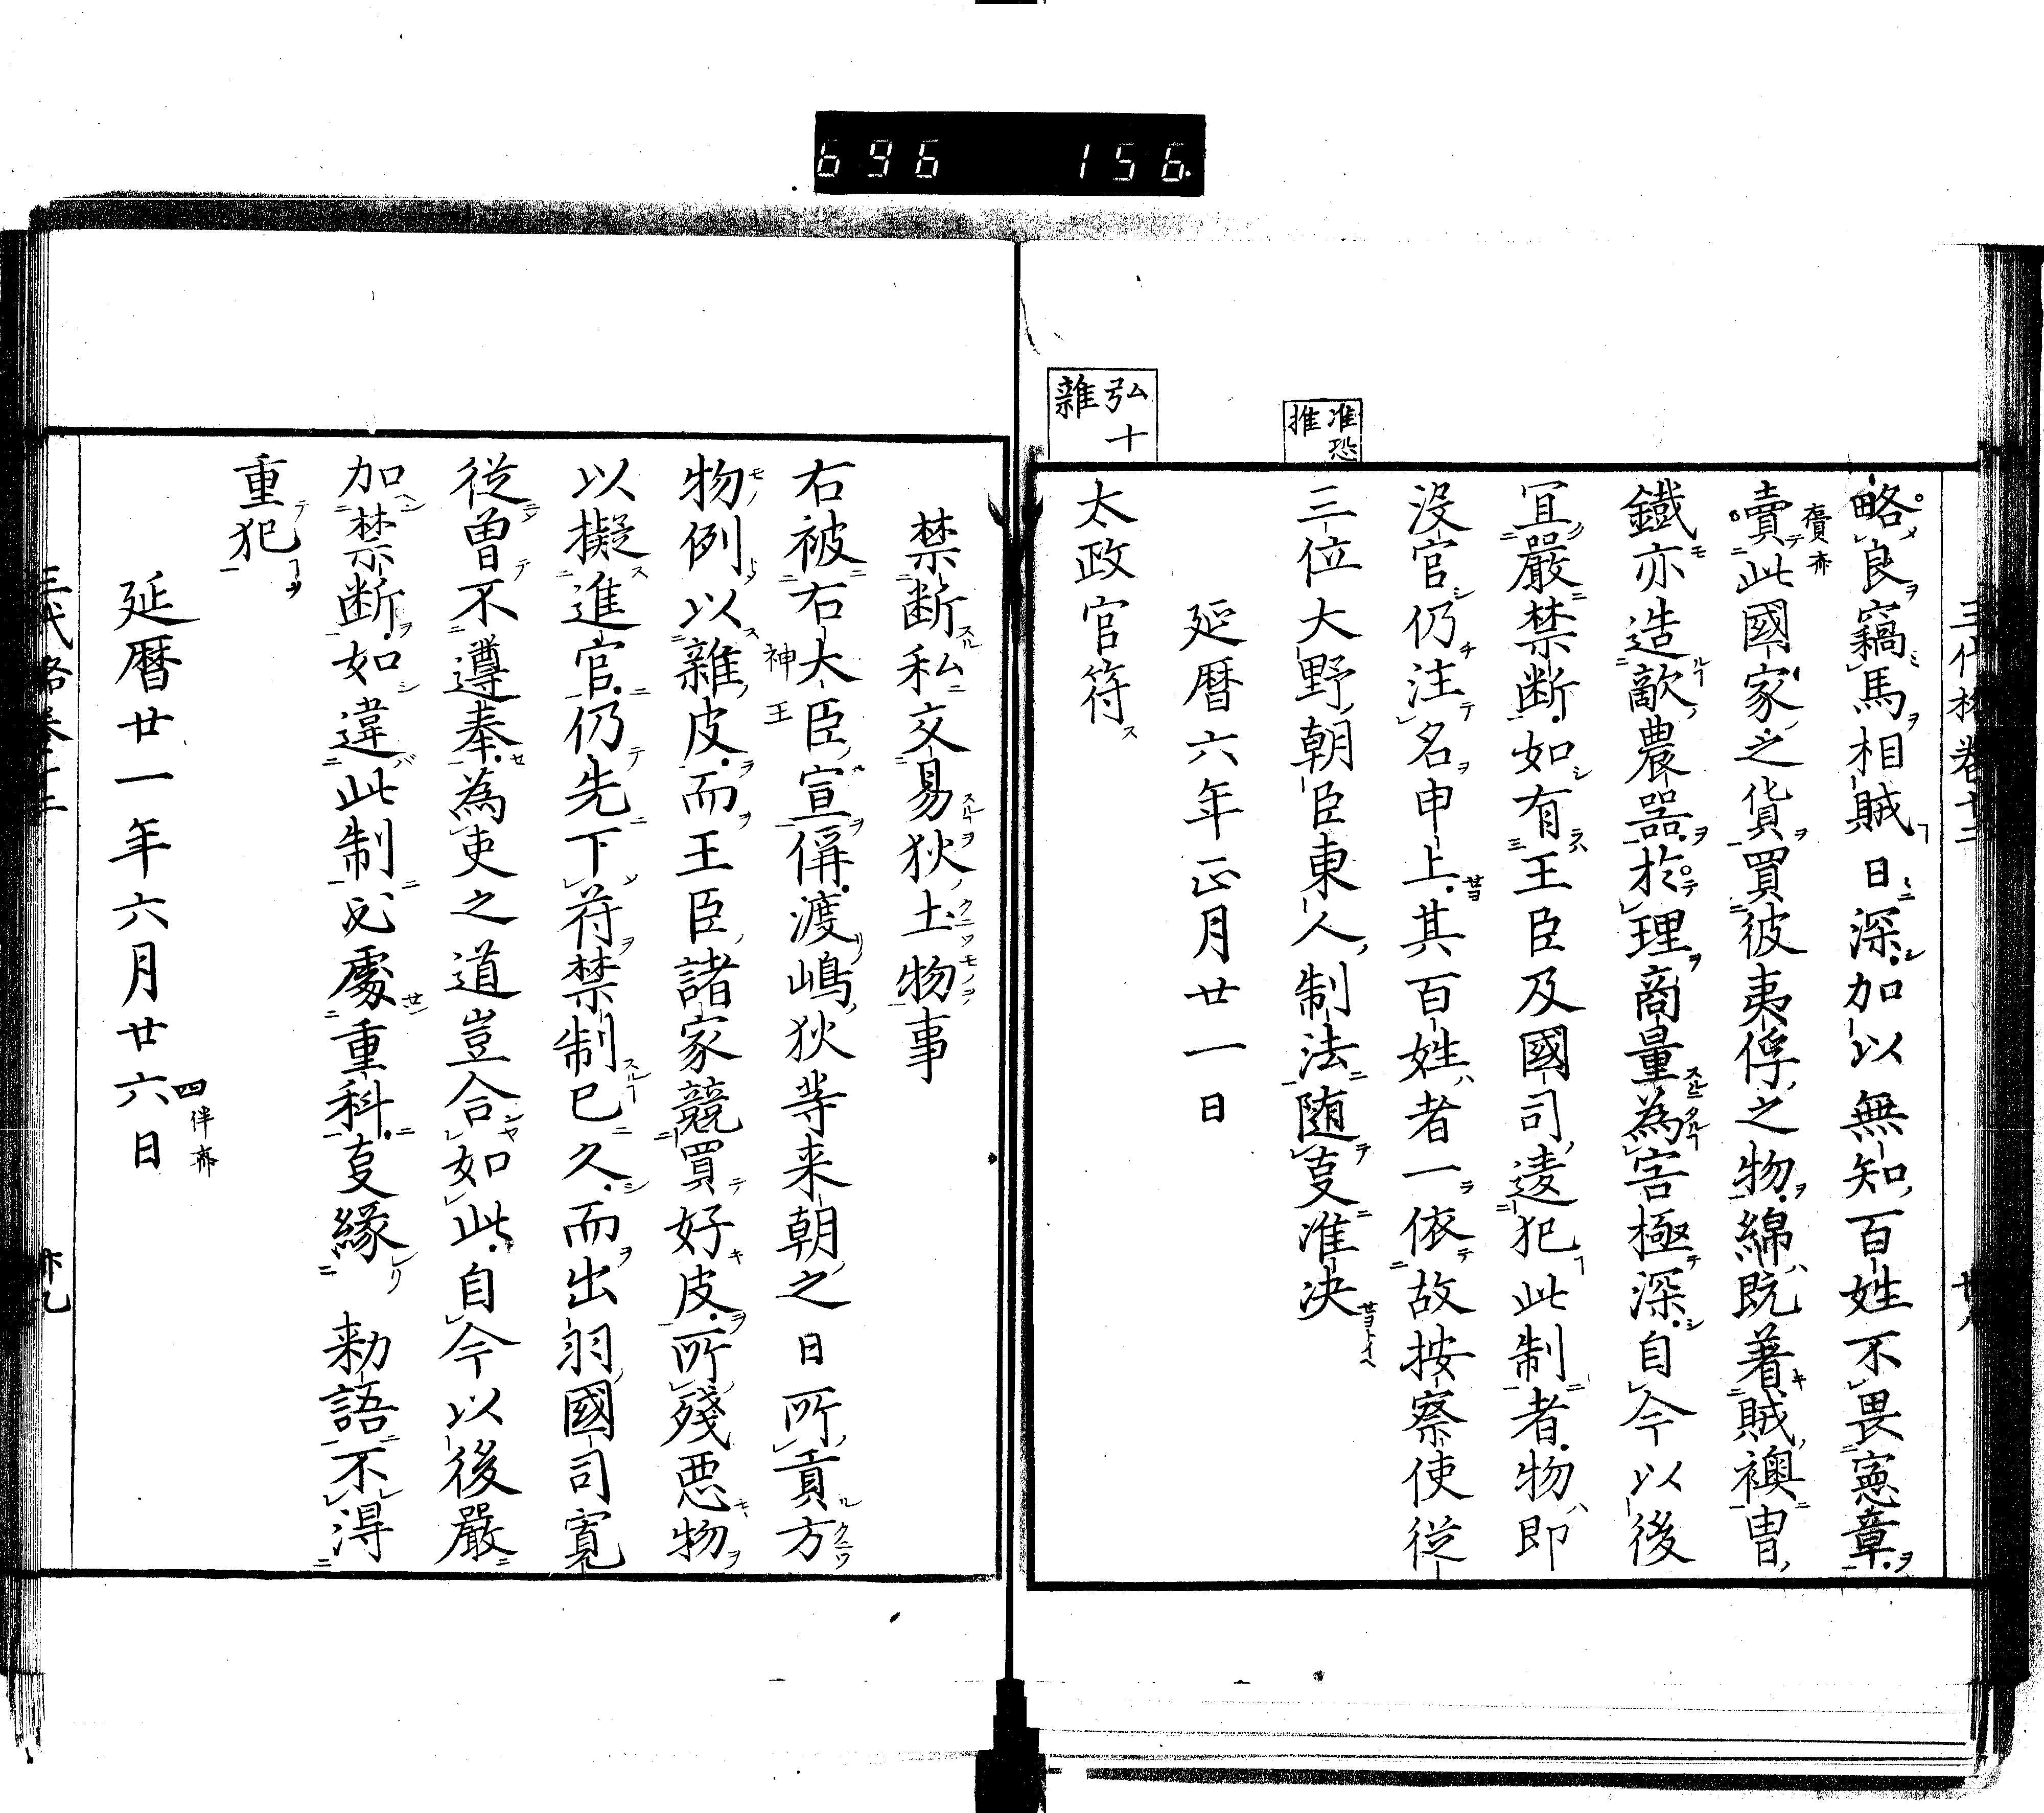 696 156
三代格卷十二 廿八
略良竊馬相賊日深加以無知百姓不畏憲章
賣此國家之貨買彼夷俘之物綿既着賊襖冑
鐵亦造敵農器於理商量為害極深自今以後
冝嚴禁断如有王臣及國司違犯此制者物即
没官仍注名申上其百姓者一依故按察使従
三位大野朝臣東人制法随叓准决
准恐
推
延暦六年正月廿一日
弘十
雜
太政官符
禁断私交易狄土物事
右被右大臣宣偁渡嶋狄等来朝之日所貢方
神王
物例以雜皮而王臣諸家競買好皮所殘悪物
以擬進官仍先下符禁制已久而出羽國司寛
従曽不遵奉為吏之道豈合如此自今以後嚴
加禁断如違此制必處重科叓緣 勅語不淂
重犯
延暦廿一年六月廿六日
三代格卷十二 廿九